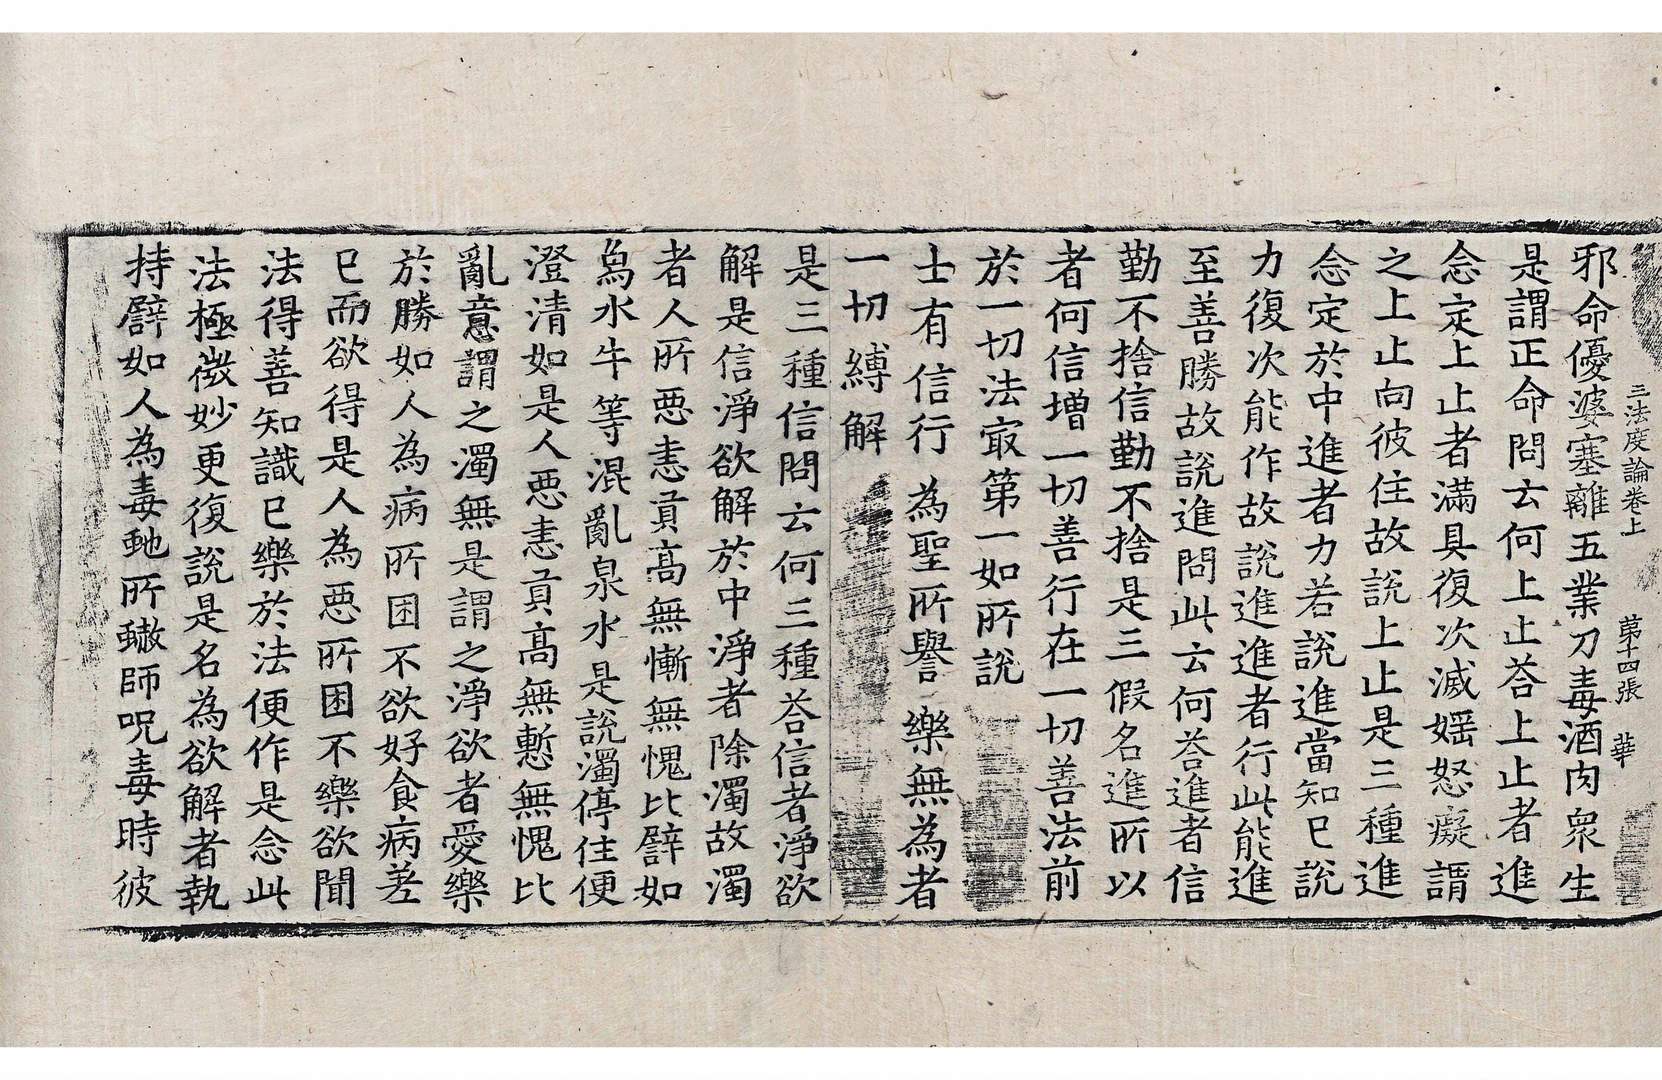 三法度論卷上 苐十四張 華
邪命優婆塞離五業刀毒酒肉衆生
是謂正命問云何上止荅上止者進
念定上止者滿具復次滅婬怒癡謂
之上止向彼住故說上止是三種進
念定於中進者力若說進當知已說
力復次能作故說進進者行此能進
至善勝故說進問此云何荅進者信
勤不捨信勤不捨是三假名進所以
者何信增一切善行在一切善法前
於一切法㝡第一如所說
士有信行 為聖所譽 樂無為者
一切縛解
是三種信問云何三種荅信者淨欲
解是信淨欲解於中淨者除濁故濁
者人所惡恚貢高無慚無愧比譬如
鳥水牛等混亂泉水是說濁停住便
澄清如是人惡恚貢高無慙無愧比
亂意謂之濁無是謂之淨欲者愛樂
於勝如人為病所困不欲好食病差
已而欲得是人為惡所困不樂欲聞
法得善知識已樂於法便作是念此
法極微妙更復說是名為欲解者執
持譬如人為毒虵所螫師呪毒時彼